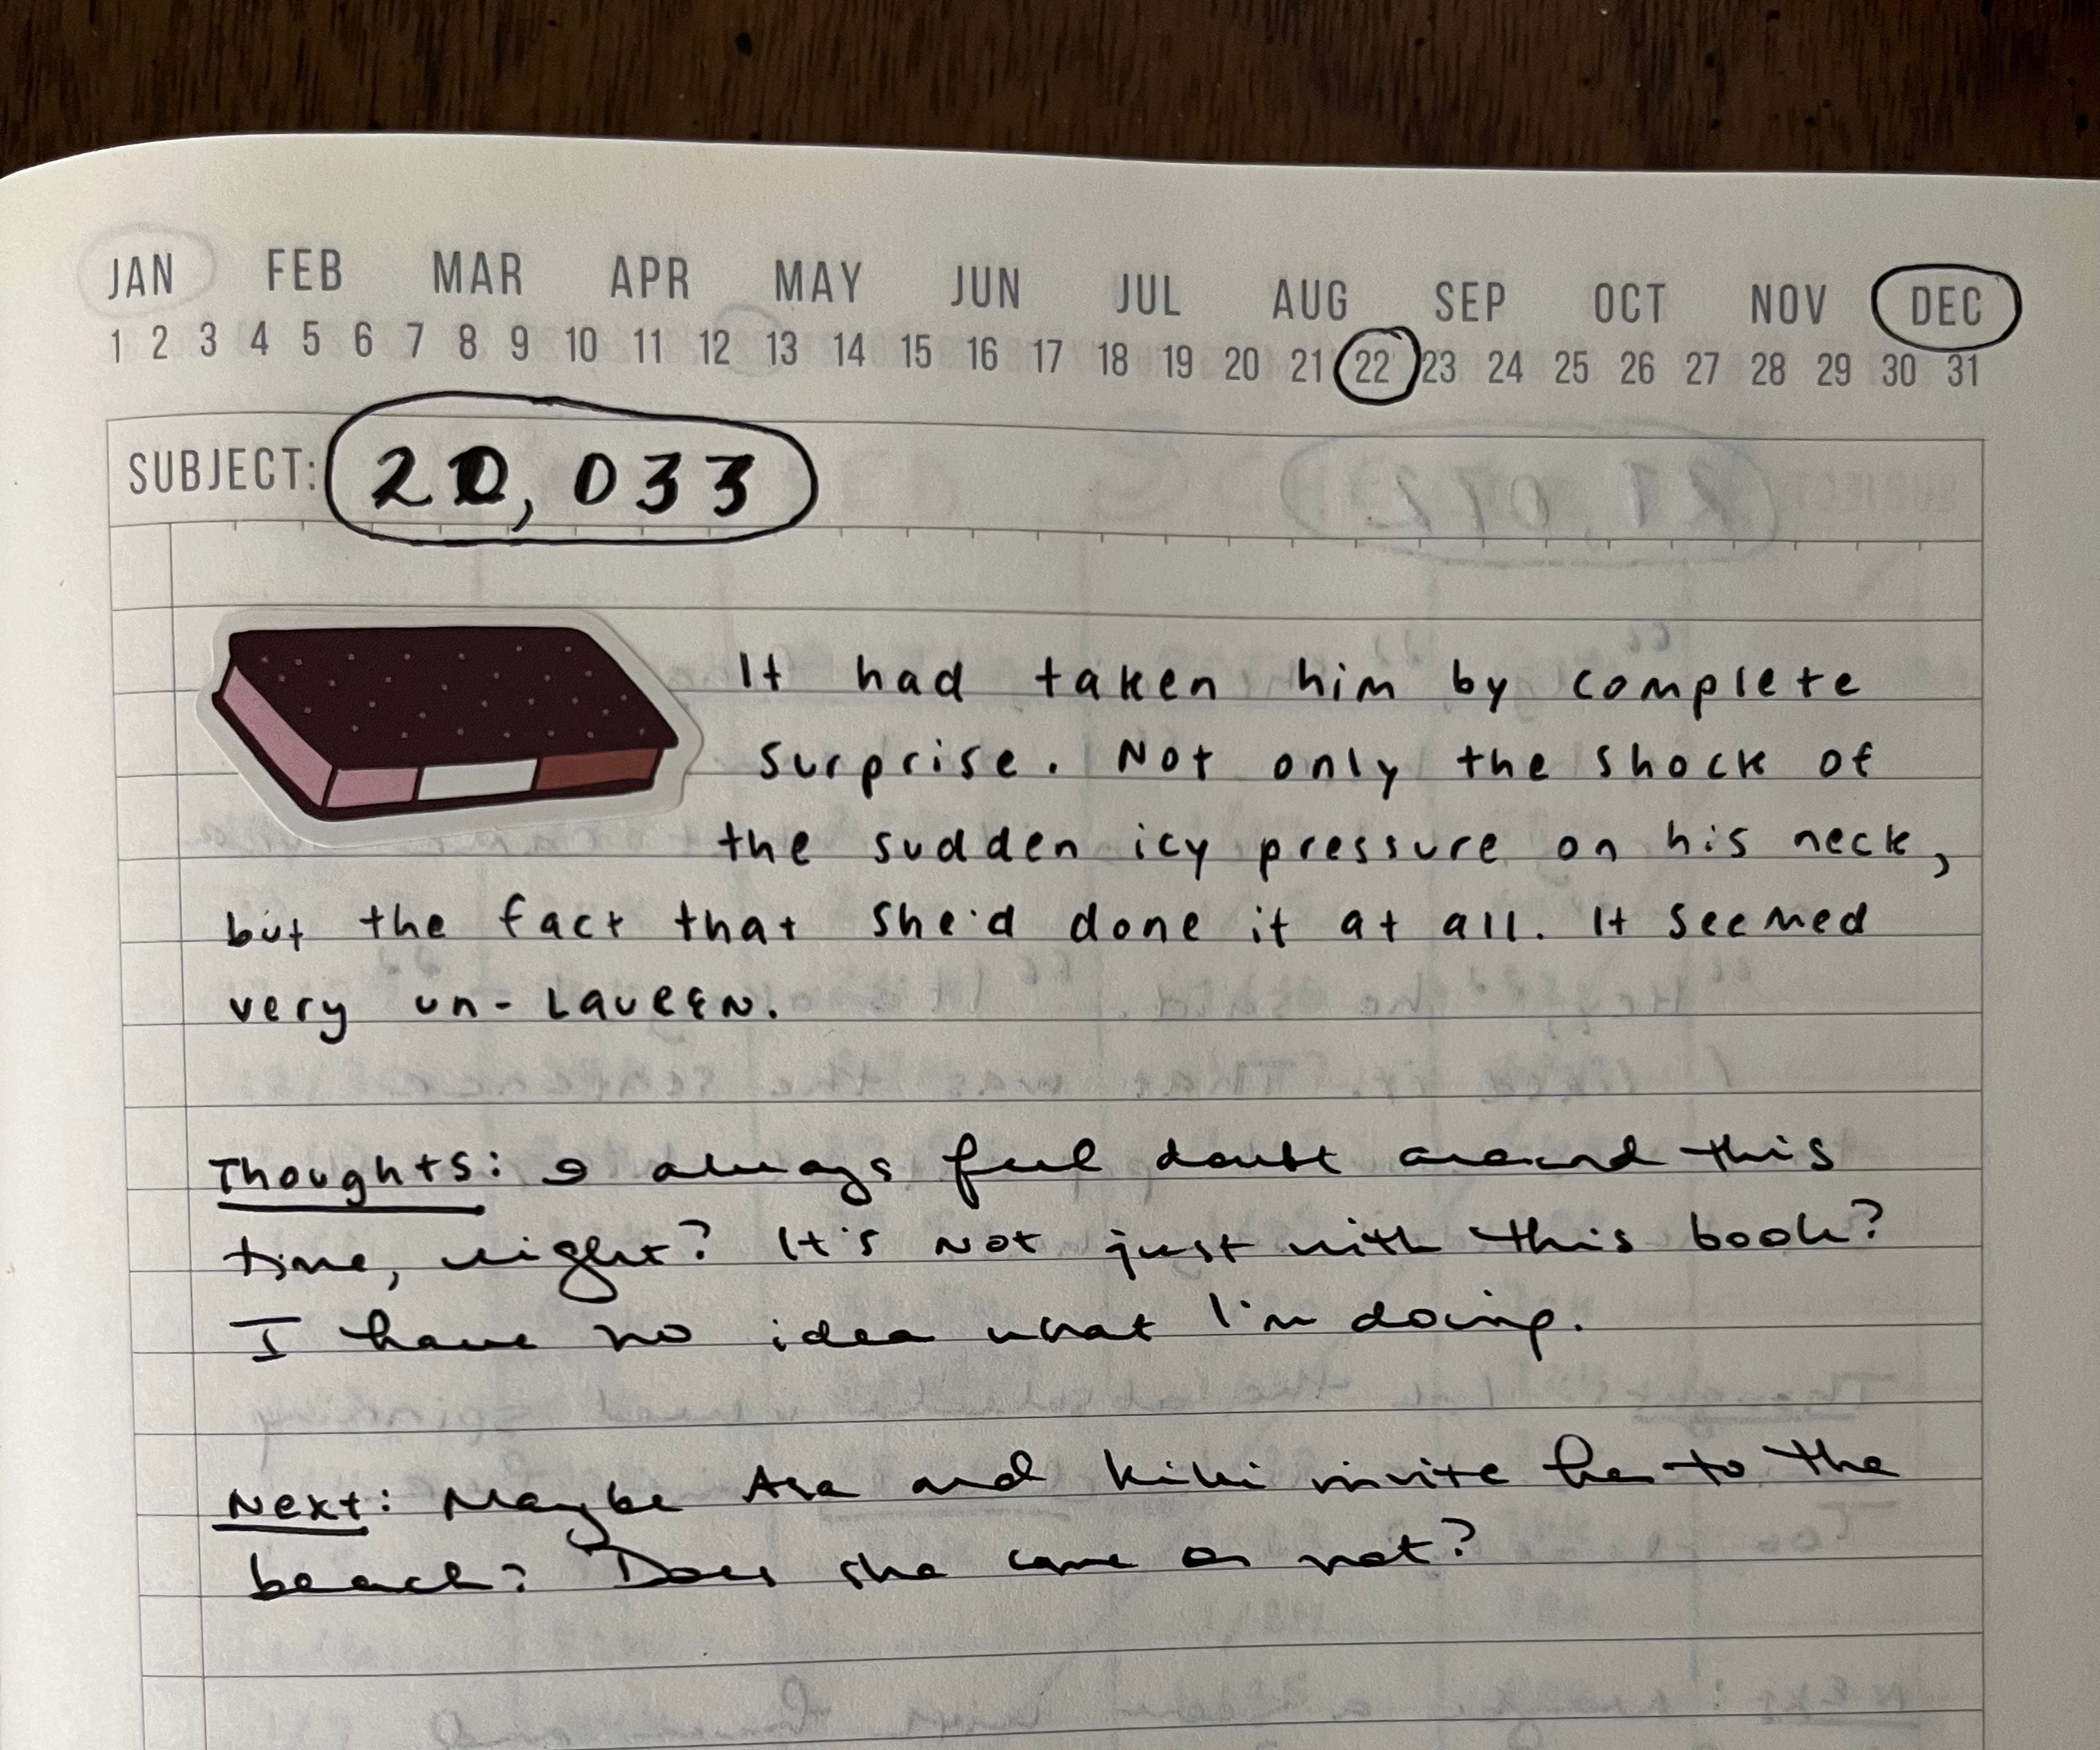 JAN FEB MAR APR MAY JUN JUL AUG SEP OCT NOV DEC
1 2 3 4 5 6 7 8 9 10 11 12 13 14 15 16 17 18 19 20 21 22 23 24 25 26 27 28 29 30 31
SUBJECT: 20,033
It had taken him by complete
surprise. Not only the shock of
the sudden icy pressure on his neck,
but the fact that she'd done it at all. It seemed
very un-Laveen.
Thoughts: I always feel doubt around this
time, right? It's not just with this book?
I have no idea what I'm doing.
Next: Maybe Asa and Kiki invite her to the
beach? Does she come or not?